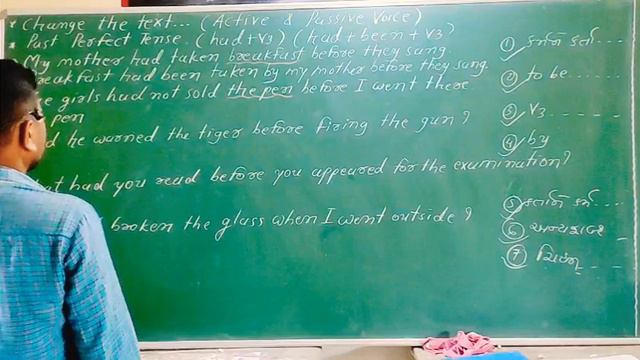 * Change the text... (Active & Passive Voice)
* Past Perfect Tense. (had + V3) (had + been + V3)
My mother had taken breakfast before they sung.
breakfast had been taken by my mother before they sung.
girls had not sold the pen before I went there.
pen
he warned the tiger before firing the gun?
had you read before you appeared for the examination?
broken the glass when I went outside?
① કર્મને કર્તા....
② to be....
③ V3.....
④ by
⑤ કર્તાને કર્મ....
⑥ અન્ય શબ્દ
⑦ ચિહ્ન...